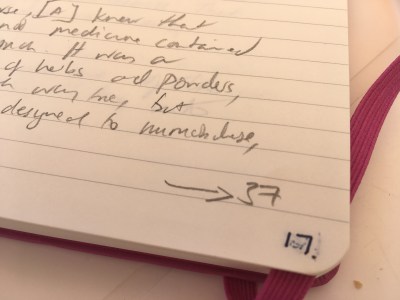 [A] knew that
medicine contained
. It was a
of herbs and powders,
was me, but
designed to
→ 37
17.